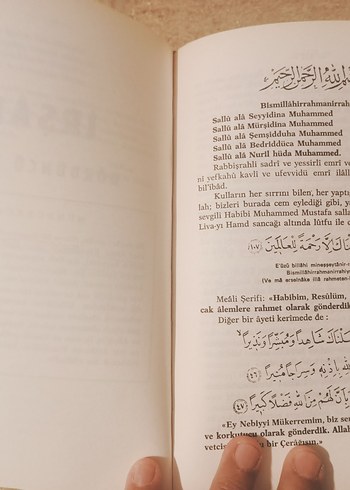 الله الرحمن الرحيم
Bismillâhirrahmanirrah
Sallû alâ Seyyidina Muhammed
Sallû alâ Mürşidina Muhammed
Sallû alâ Şemşidduha Muhammed
Sallû alâ Bedriddüca Muhammed
Sallû alâ Nuril hüda Muhammed.
Rabbişrahli sadrî ve yessirlî emrî v
nî yefkahü kavlî ve ufevvidü emrî ilâll
bil'ibâd.
Kulların her sırrını bilen, her yaptı
lah; bizleri burada cem eylediği gibi, y
sevgili Habibi Muhammed Mustafa salla
Liva-yı Hamd sancağı altında lûtfu ile c
نَاكَ اِلَّا رَحْمَةً لِلْعَالَمِينَ ﴿١٠٧﴾
E'ûzü billâhi mineşşeytânir-r
Bismillâhirrahmanirrahiy
(Ve mâ erselnâke illâ rahmeten-
Meâli Şerifi: «Habibim, Resûlüm,
cak âlemlere rahmet olarak gönderdik
Diğer bir âyeti kerimede de :
لْنَاكَ شَاهِداً وَمُبَشِّراً وَنَذِيراً
اللهِ بِاِذْنِهِ وَسِرَاجاً مُنِيراً ﴿٤٦﴾
بِاَنَّ لَهُمْ مِنَ اللهِ فَضْلاً كَبِيراً ﴿٤٧﴾
«Ey Nebiyyi Mükerremim, biz sen
ve korkutucu olarak gönderdik. Allah
vetcis bir Çerâğsın.»